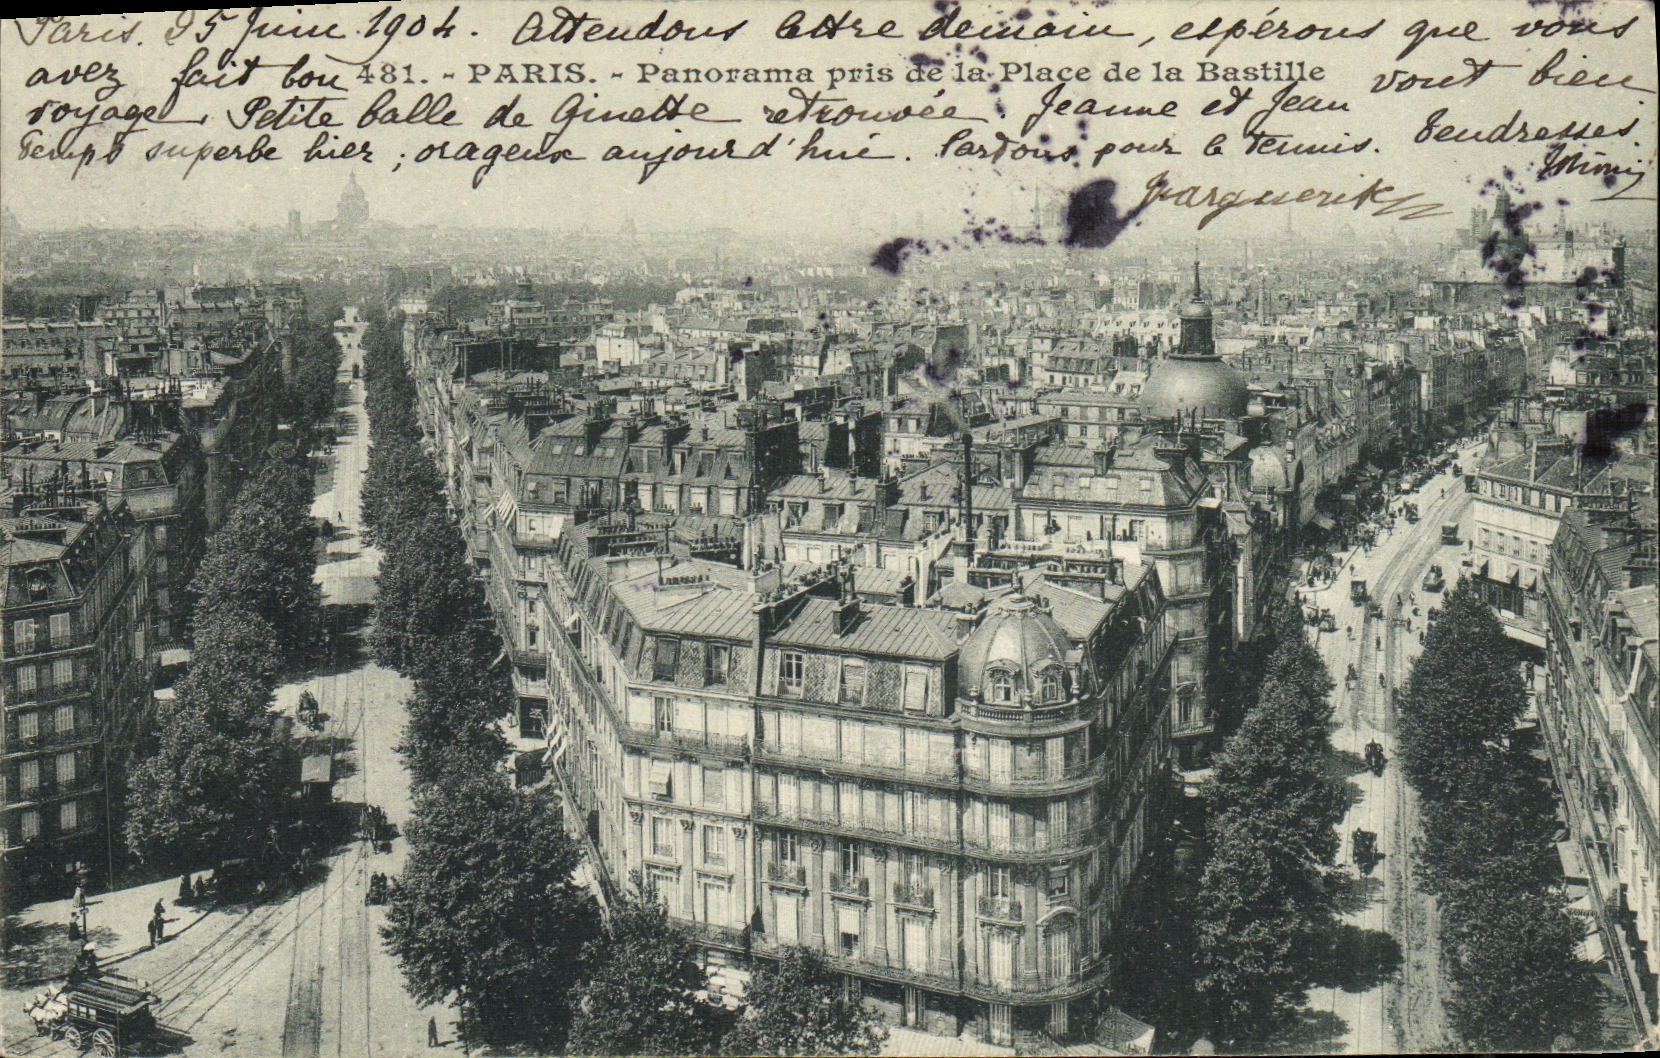 Paris. 25 Juin 1904. Attendons lettre demain, espérons que vous
avez fait bon
481. - PARIS. - Panorama pris de la Place de la Bastille
voyage. Petite balle de Ginette retrouvée. Jeanne et Jean vont bien.
Temps superbe hier ; orageux aujourd'hui. Partons pour le Tennis. Tendresses
Marguerite